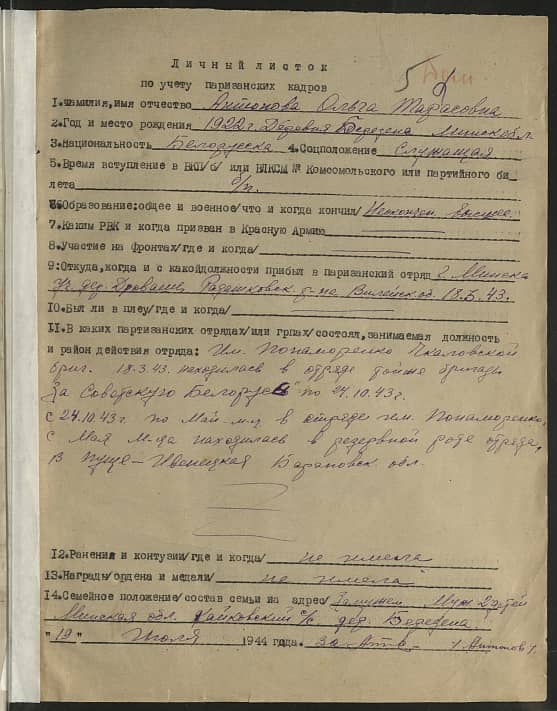 Личный листок
по учету паризанских кадров
1.Фамилия,имя отчество Антонова Ольга Тарасовна
2.Год и место рождения 1922 г. Деревня Березена Минск обл.
3.Национальность Белоруска 4.Соцположение Служащая
5.Время вступление в ВКП/б/ или ВЛКСМ № Комсомольского или партийного би-
лета б/п.
6.Образование:общее и военное/что и когда кончил/ Неокончен высшее
7.Каким РВК и когда призван в Красную Армию
8.Участие на фронтах/где и когда/
9:Откуда,когда и с какойдолжности прибыл в паризанский отряд г. Минска
дер. Радашковск р-на Вилейск об. 18.3.43.
10.Был ли в плеу/где и когда/
11.В каких партизанских отрядах/или грпах/состоял,занимаемая должность
и район действия отряда: Им. Понаморенко Чкаловской
бриг. 18.3.43. находилась в отряде тойже бригады
За Советскую Белорусь" по 24.10.43 г.
с 24.10.43 г. по Май м-ц в отряде им. Понаморенко,
с Мая м-ца находилась в резервной роте отряда,
В пуще - Ивенецкая Барановск. обл.
12.Ранения и контузии/где и когда/ не имела
13.Награды/ордена и медали/ не имела
14.Семейное положение/состав семьи иа адрес/ Замужем Муж 2 детей
Минская обл. с/с дер. Березена
"19" Июля 1944 года.